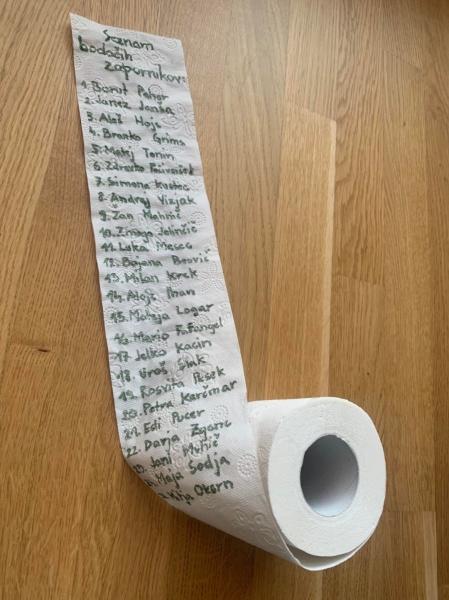 Seznam
bodočih
zapornikov:
1. Borut Pahor
2. Janez Janša
3. Aleš Hojs
4. Branko Grims
5. Matej Tonin
6. Zdravko Počivalšek
7. Simona Kustec
8. Andrej Vizjak
9. Žan Mahnič
10. Zmago Jelinčič
11. Luka Mesec
12. Bojana Beović
13. Milan Krek
14. Alojz Ihan
15. Mateja Logar
16. Mario Fafangel
17. Jelko Kacin
18. Uroš Slak
19. Rosvita Pesek
20. Petra Kerčmar
21. Edi Pucer
22. Darja Zgonc
23. Jani Muhič
Maja Sodja
Katja Okorn